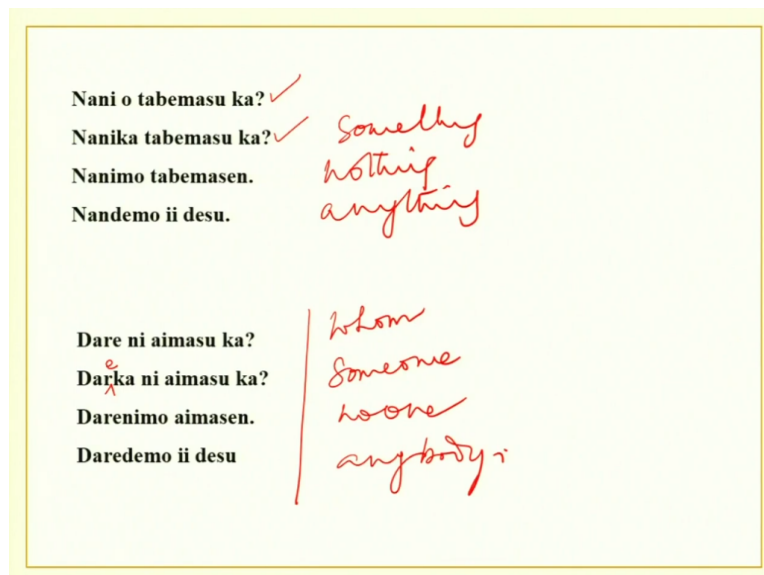 Nani o tabemasu ka? ✓
Nanika tabemasu ka? ✓ something
Nanimo tabemasen. nothing
Nandemo ii desu. anything
Dare ni aimasu ka? whom
e
Darka ni aimasu ka? someone
Darenimo aimasen. no one
Daredemo ii desu anybody